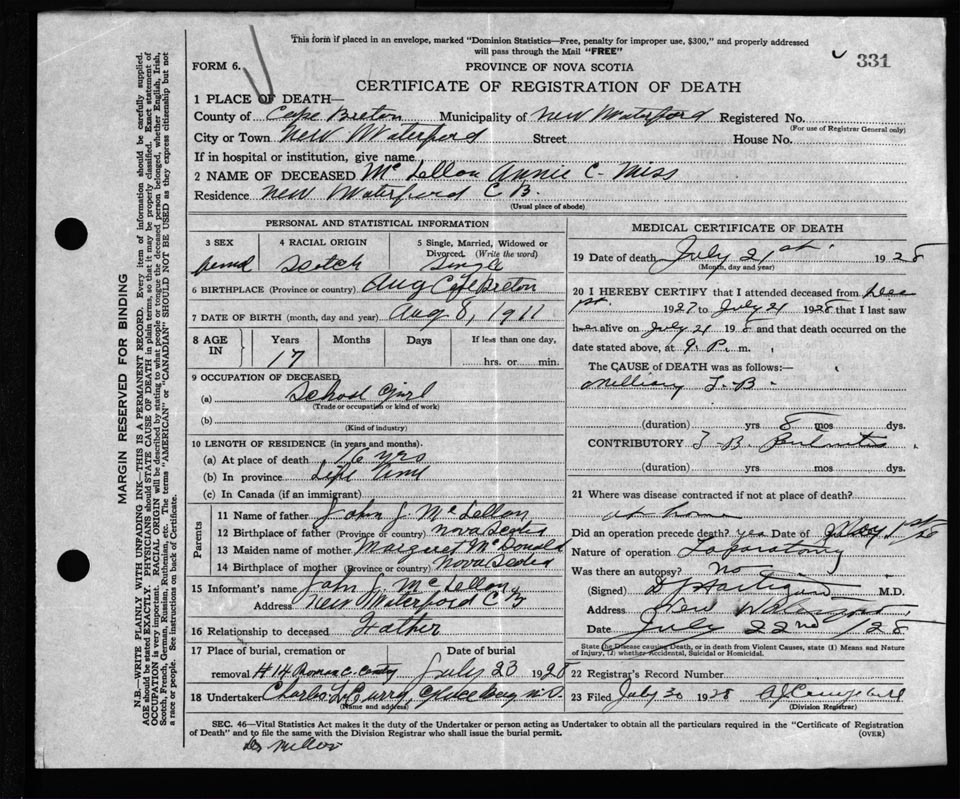 This form if placed in an envelope, marked "Dominion Statistics—Free, penalty for improper use, $300," and properly addressed
will pass through the Mail "FREE"
331
FORM 6.
PROVINCE OF NOVA SCOTIA
CERTIFICATE OF REGISTRATION OF DEATH
1 PLACE OF DEATH—
County of Cape Breton Municipality of New Waterford Registered No.
(For use of Registrar General only)
City or Town New Waterford Street House No.
If in hospital or institution, give name
2 NAME OF DECEASED McLellan Annie C. Miss
Residence New Waterford C.B.
(Usual place of abode)
PERSONAL AND STATISTICAL INFORMATION
3 SEX 4 RACIAL ORIGIN 5 Single, Married, Widowed or
Divorced. (Write the word)
Scotch Single
6 BIRTHPLACE (Province or country) Cape Breton
7 DATE OF BIRTH (month, day and year) Aug 8, 1911
8 AGE IN Years Months Days If less than one day,
17 hrs. or min.
9 OCCUPATION OF DECEASED
(a) School Girl
(Trade or occupation or kind of work)
(b)
(Kind of industry)
10 LENGTH OF RESIDENCE (in years and months).
(a) At place of death 16 yrs
(b) In province Life time
(c) In Canada (if an immigrant)
Parents
11 Name of father John J. McLellan
12 Birthplace of father (Province or country) Nova Scotia
13 Maiden name of mother Margaret McDonald
14 Birthplace of mother (Province or country) Nova Scotia
15 Informant's name John J. McLellan
Address New Waterford C B
16 Relationship to deceased Father
17 Place of burial, cremation or Date of burial
removal July 23 1928
18 Undertaker Charles Curry
(Name and address)
MEDICAL CERTIFICATE OF DEATH
19 Date of death July 21st 1928
(Month, day and year)
20 I HEREBY CERTIFY that I attended deceased from Dec
1st 1927 to July 21 1928 that I last saw
her alive on July 21 1928 and that death occurred on
date stated above, at 9 P. m.
The CAUSE of DEATH was as follows:—
Milliary T.B.
(duration) yrs 8 mos dys.
CONTRIBUTORY T.B.
(duration) yrs mos dys.
21 Where was disease contracted if not at place of death?
at home
Did an operation precede death? yes Date of May 1st/28
Nature of operation Laparatomy
Was there an autopsy? No
(Signed) M.D.
Address New Waterford
Date July 22nd /28
State the Disease causing Death, or in death from Violent Causes, state (1) Means and Nature
of Injury, (2) whether Accidental, Suicidal or Homicidal.
22 Registrar's Record Number
23 Filed July 30 1928 Campbell
(Division Registrar)
SEC. 46—Vital Statistics Act makes it the duty of the Undertaker or person acting as Undertaker to obtain all the particulars required in the "Certificate of Registration
of Death" and to file the same with the Division Registrar who shall issue the burial permit.
(OVER)
MARGIN RESERVED FOR BINDING
N.B.—WRITE PLAINLY WITH UNFADING INK—THIS IS A PERMANENT RECORD. Every item of information should be carefully supplied.
AGE should be stated EXACTLY. PHYSICIANS should STATE CAUSE OF DEATH in plain terms, so that it may be properly classified. Exact statement of
OCCUPATION is very important. RACIAL ORIGIN will be described by stating to what people or tongue the deceased person belonged, whether English, Irish,
Scotch, French, German, Russian, Ruthenian, etc. The terms "AMERICAN" or "CANADIAN" SHOULD NOT BE USED as they express citizenship but not
a race or people. See instructions on back of Certificate.